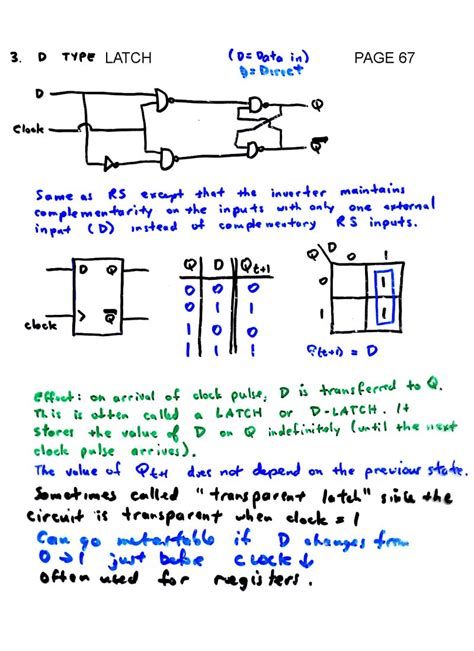 3. D TYPE LATCH (D = Data in) PAGE 67
D = Direct
D
Clock
Q
Q̅
Same as RS except that the inverter maintains
complementarity on the inputs with only one external
input (D) instead of complementary RS inputs.
D Q
> Q̅
clock
Q D Qt+1
0 0 0
0 1 1
1 0 0
1 1 1
Q D 0 1
0 1
1 1
Q(t+1) = D
Effect: on arrival of clock pulse, D is transferred to Q.
This is often called a LATCH or D-LATCH. It
stores the value of D on Q indefinitely (until the next
clock pulse arrives).
The value of Qt+1 does not depend on the previous state.
Sometimes called "transparent latch" since the
circuit is transparent when clock = 1
Can go metastable if D changes from
0 → 1 just before CLOCK ↓
Often used for registers.